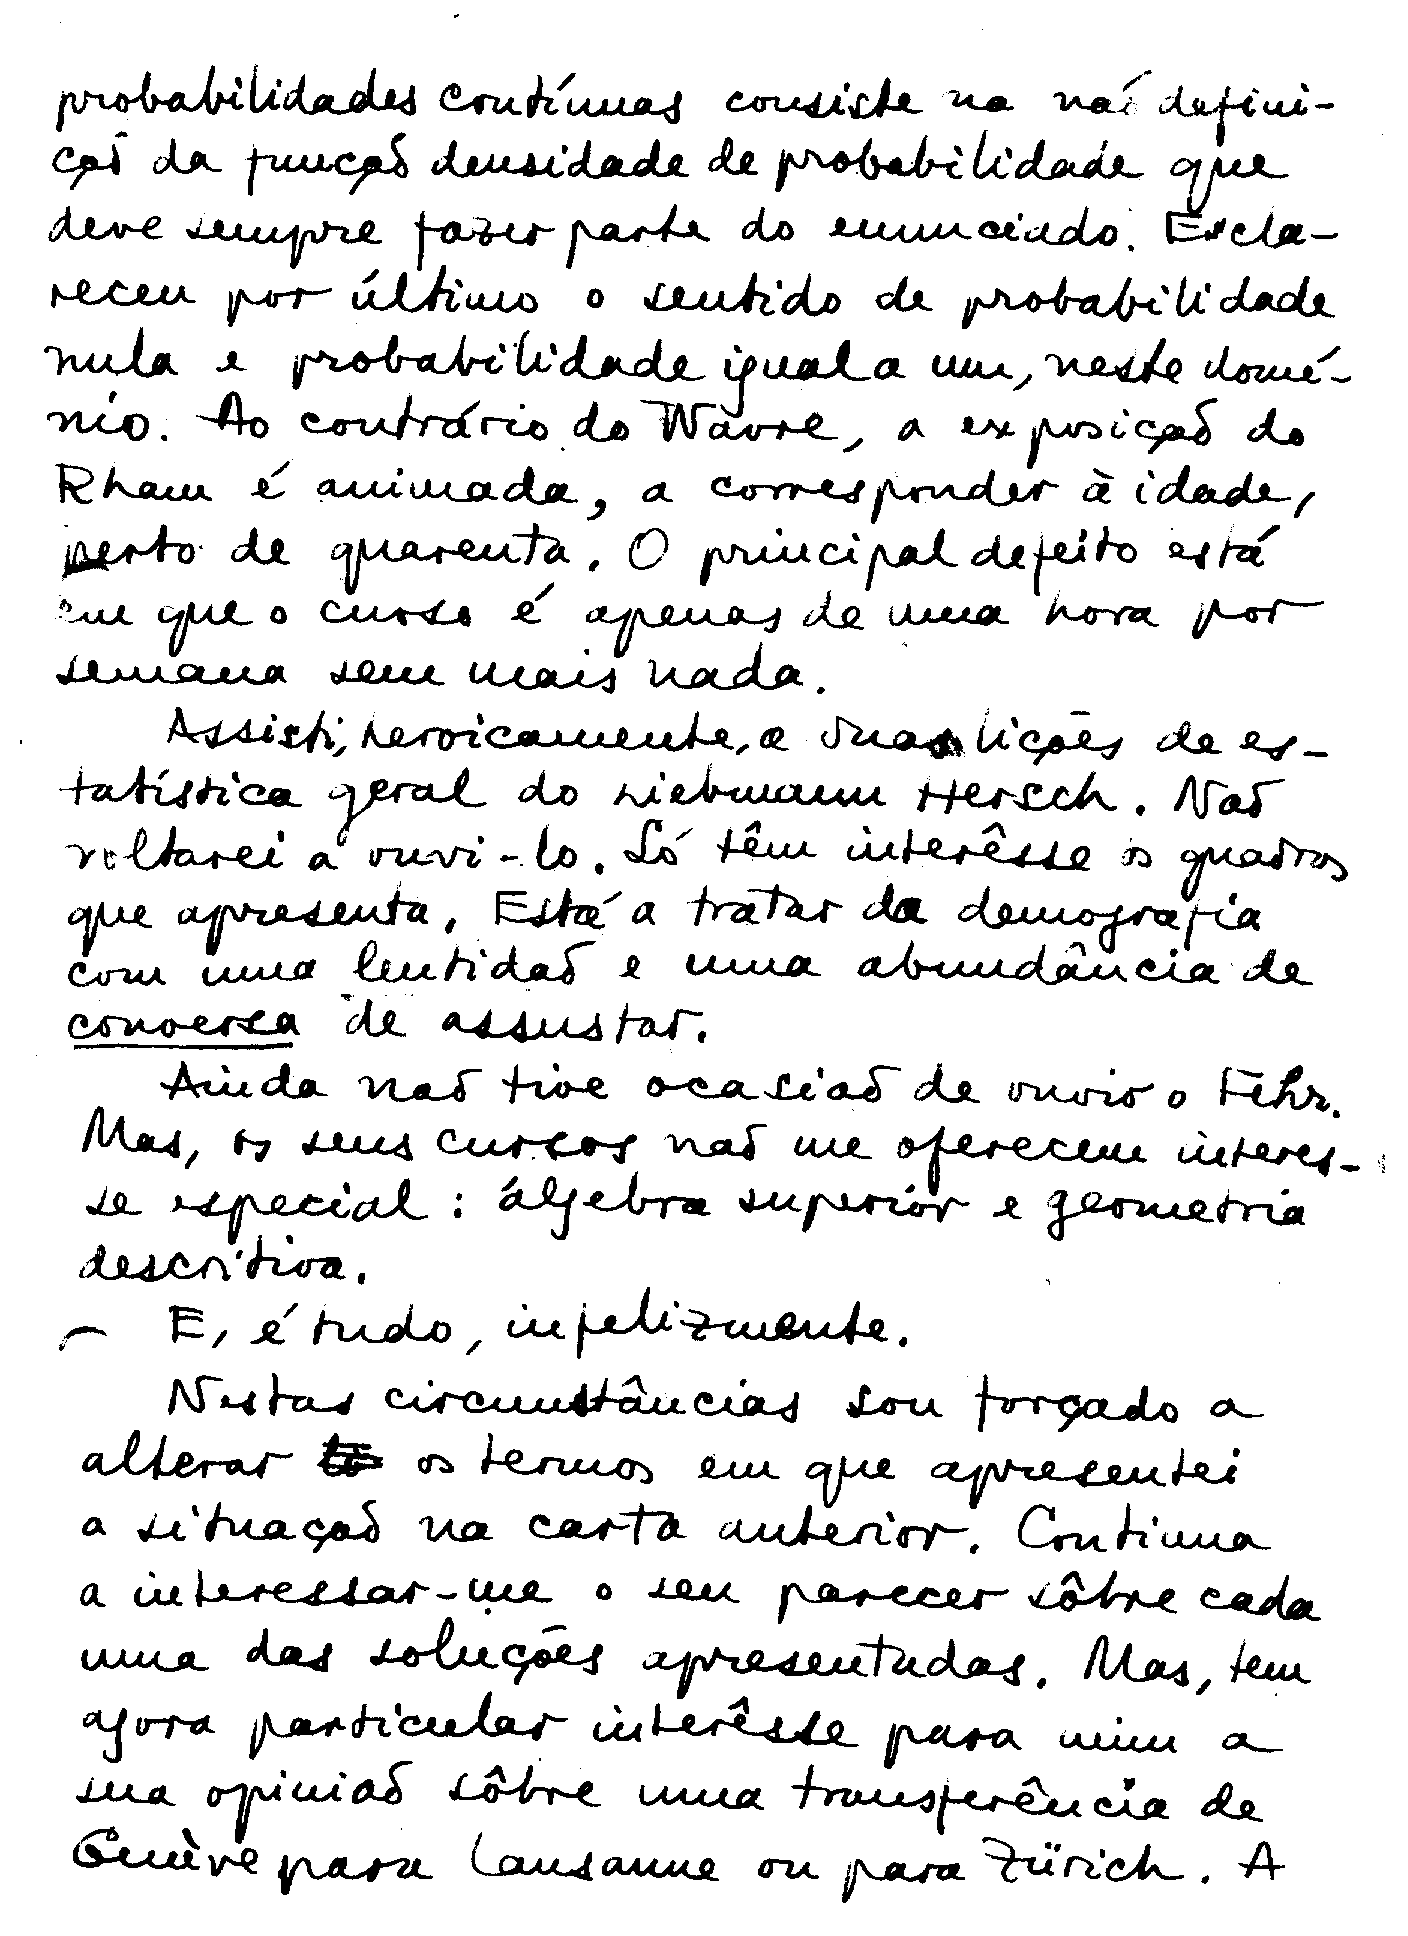 probabilidades contínuas consiste na não defini-
ção da função densidade de probabilidade que
deve sempre fazer parte do enunciado. Escla-
receu por último o sentido de probabilidade
nula e probabilidade igual a um, neste domí-
nio. Ao contrário do Wavre, a exposição do
Rham é animada, a corresponder à idade,
perto de quarenta. O principal defeito está
em que o curso é apenas de uma hora por
semana sem mais nada.
Assisti, heroicamente, a duas lições de es-
tatística geral do Liebmann Hersch. Não
voltarei a ouvi-lo. Só têm interêsse os quadros
que apresenta. Está a tratar da demografia
com uma lentidão e uma abundância de
conversa de assustar.
Ainda não tive ocasião de ouvir o Fehr.
Mas, os seus cursos não me oferecem interes-
se especial: álgebra superior e geometria
descritiva.
– E, é tudo, infelizmente.
Nestas circunstâncias sou forçado a
alterar os termos em que apresentei
a situação na carta anterior. Continua
a interessar-me o seu parecer sôbre cada
uma das soluções apresentadas. Mas, tem
agora particular interêsse para mim a
sua opinião sôbre uma transferência de
Genève para Lausanne ou para Zürich. A